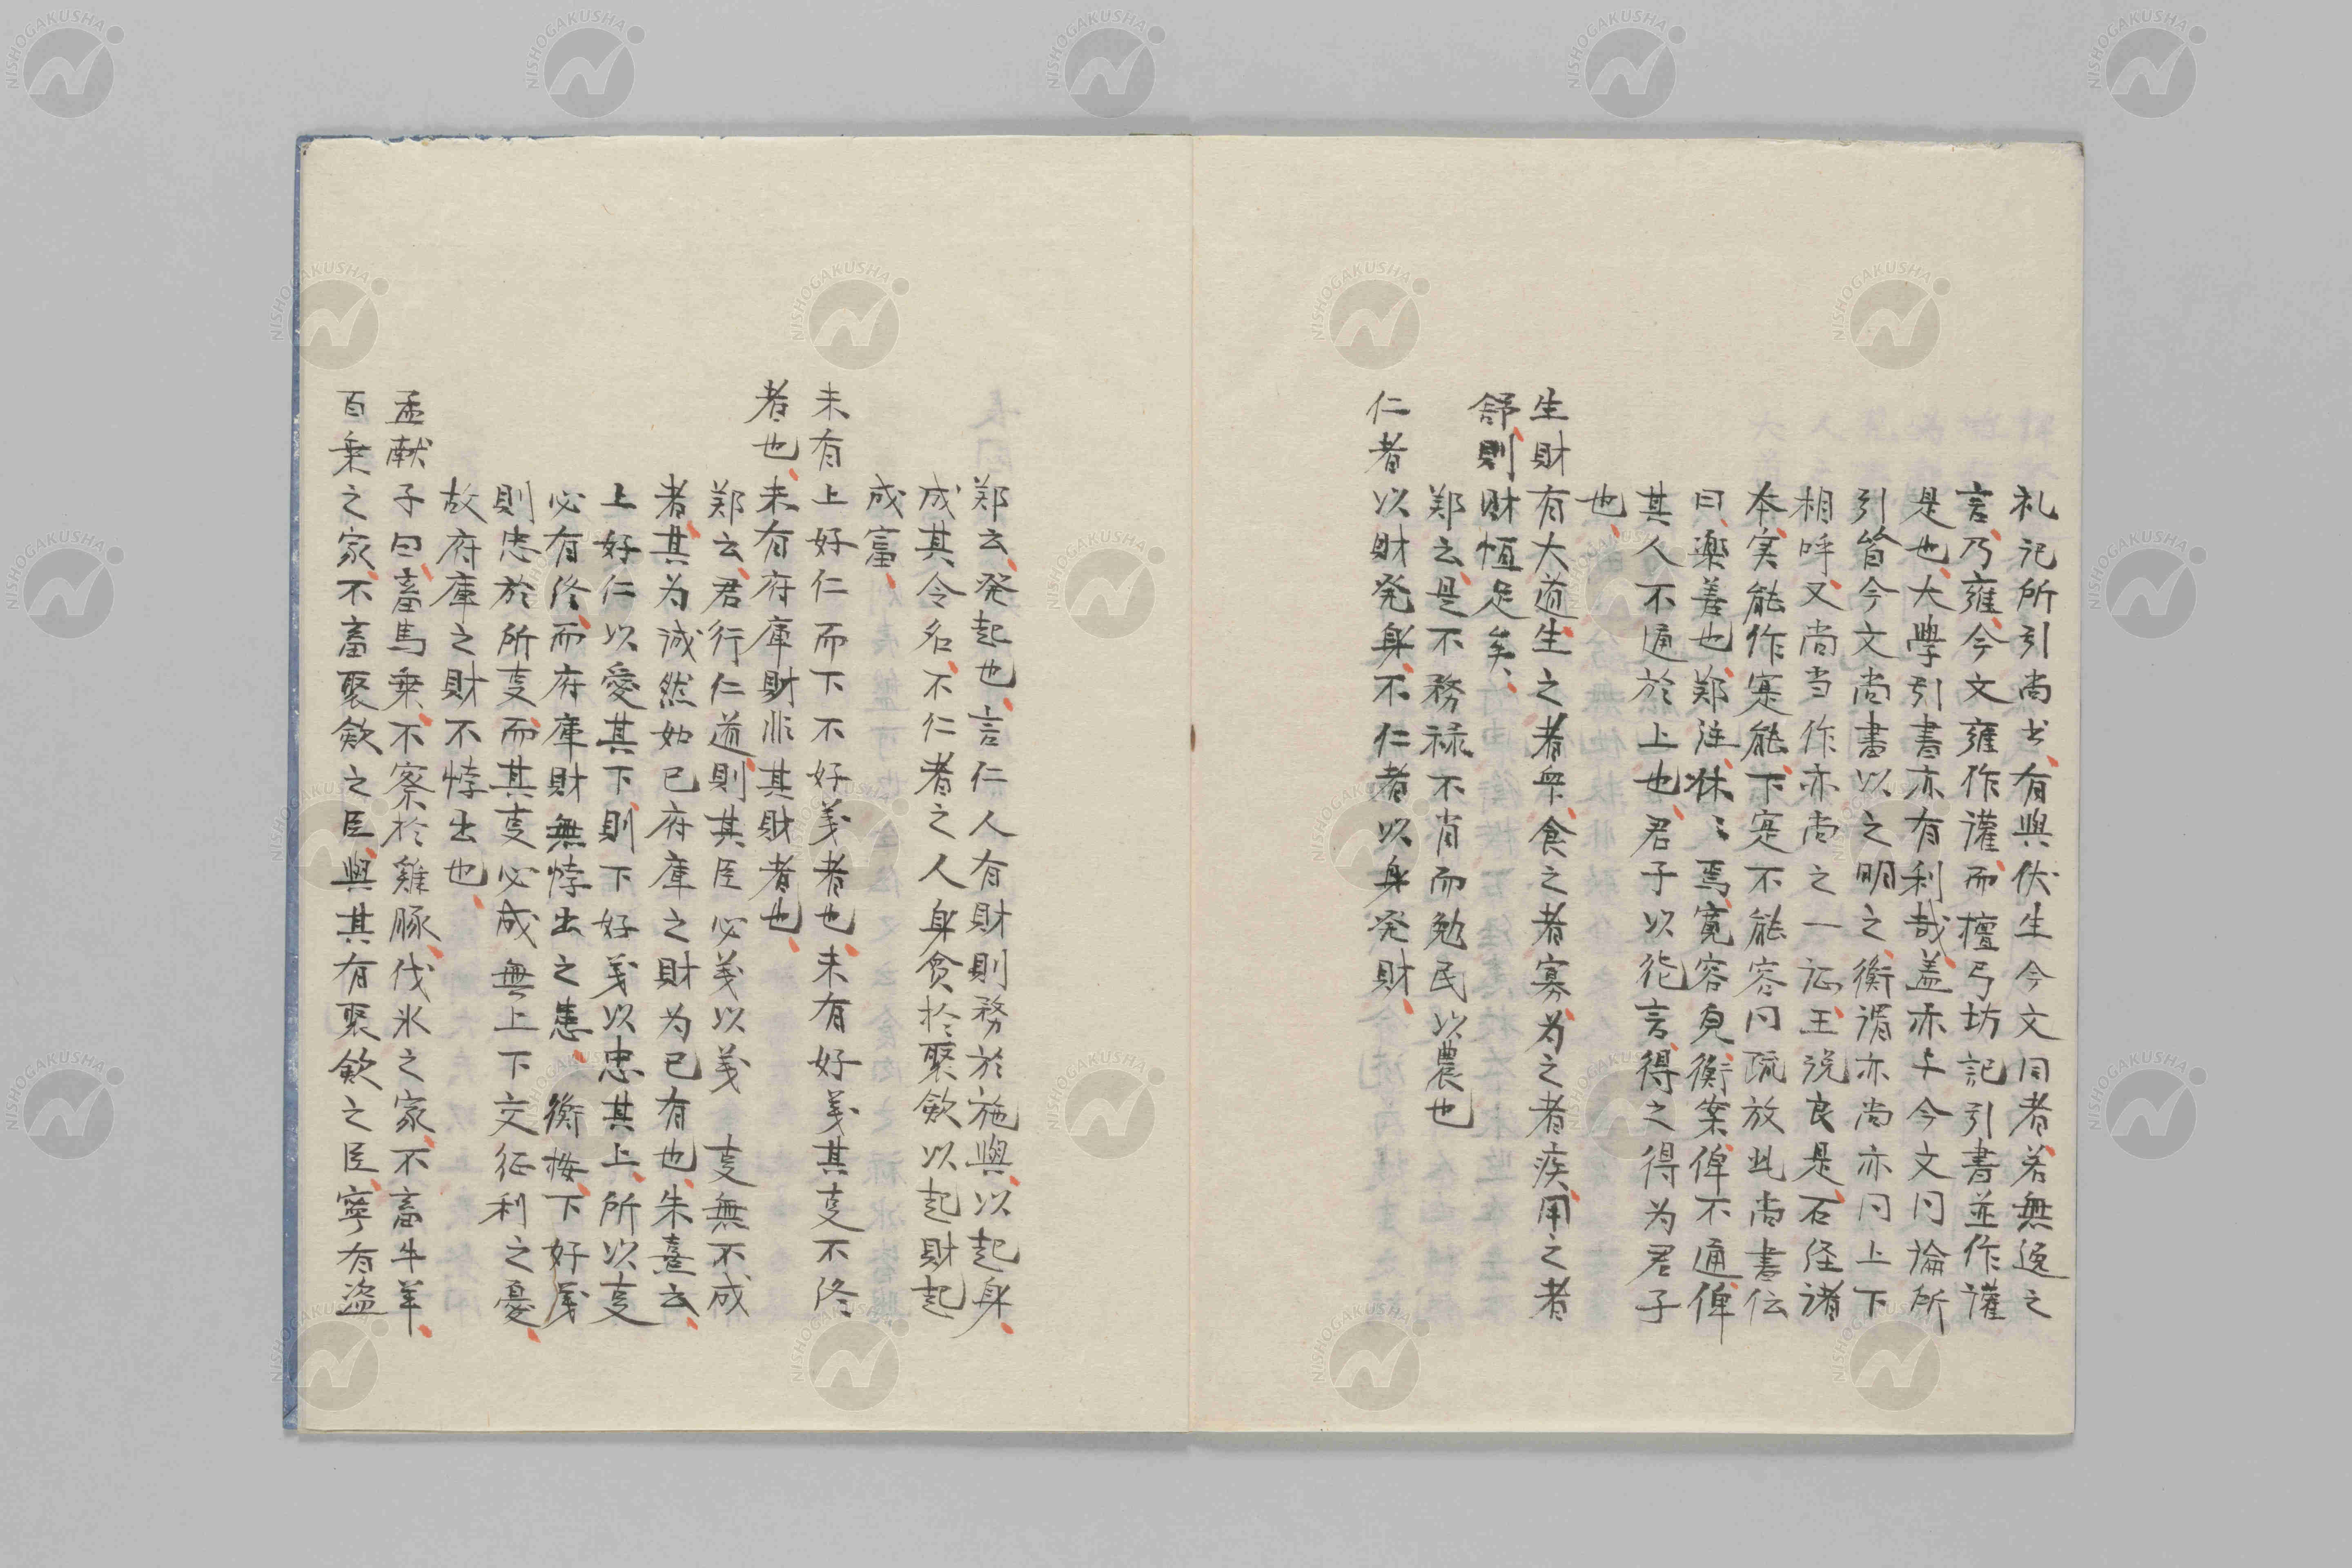 礼記所引尚书、有與伏生今文同者、若無逸之
言、乃雍、今文雍作讙、而檀弓坊記引書並作讙
是也、大學引書亦有利哉、盖亦与今文同、論所
引皆今文尚書、以之明之、衡謂亦尚亦同、上下
相呼、又尚当作亦尚之一証、王説良是、石経諸
本、実能作寔能、下寔不能容同、疏放此、尚書伝
曰、楽善也、鄭注、休〻焉、寛容皃、衡案俾不通、俾
其人不通於上也、君子以能言、得之得为君子
也、
生財有大道、生之者衆、食之者寡、为之者疾、用之者
舒、則財恒足矣、
鄭云、是不務禄不肖而勉民以農也
仁者以財発身、不仁者以身発財、
鄭云、発起也、言仁人有財則務於施與、以起身、
成其令名、不仁者之人身貪於聚斂以起財起
成富、
未有上好仁而下不好義者也、未有好義其㕝不终
者也、未有府庫財非其財者也、
鄭云、君行仁道、則其臣必義以義 㕝無不成
者、其为诚然如已府庫之財为已有也、朱熹云、
上好仁以愛其下、則下好義以忠其上、所以㕝
必有终、而府庫財無悖出之患、衡按、下好義
則忠於所㕝、而其㕝必成、無上下交征利之憂、
故府庫之財不悖出也、
孟献子曰、畜馬乗、不察於雞豚、伐氷之家、不畜牛羊、
百乗之家、不畜聚斂之臣、與其有聚斂之臣、寧有盗
NISHOGAKUSHA